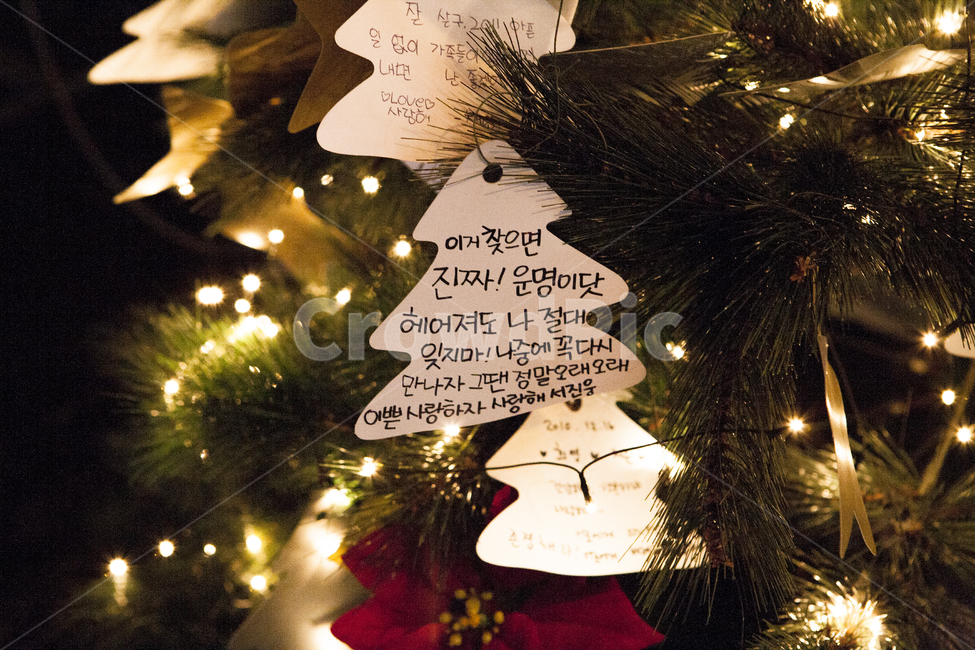 잘 살구, 2011 아픈
일 없이 가족들이
내면 난
♡Love♡
사랑해
이거 찾으면
진짜! 운명이닷
헤어져도 나 절대
잊지마! 나중에 꼭 다시
만나자 그땐 정말 오래오래
이쁜 사랑하자 사랑해 서진웅
2010. 12. 16
CrowdPic